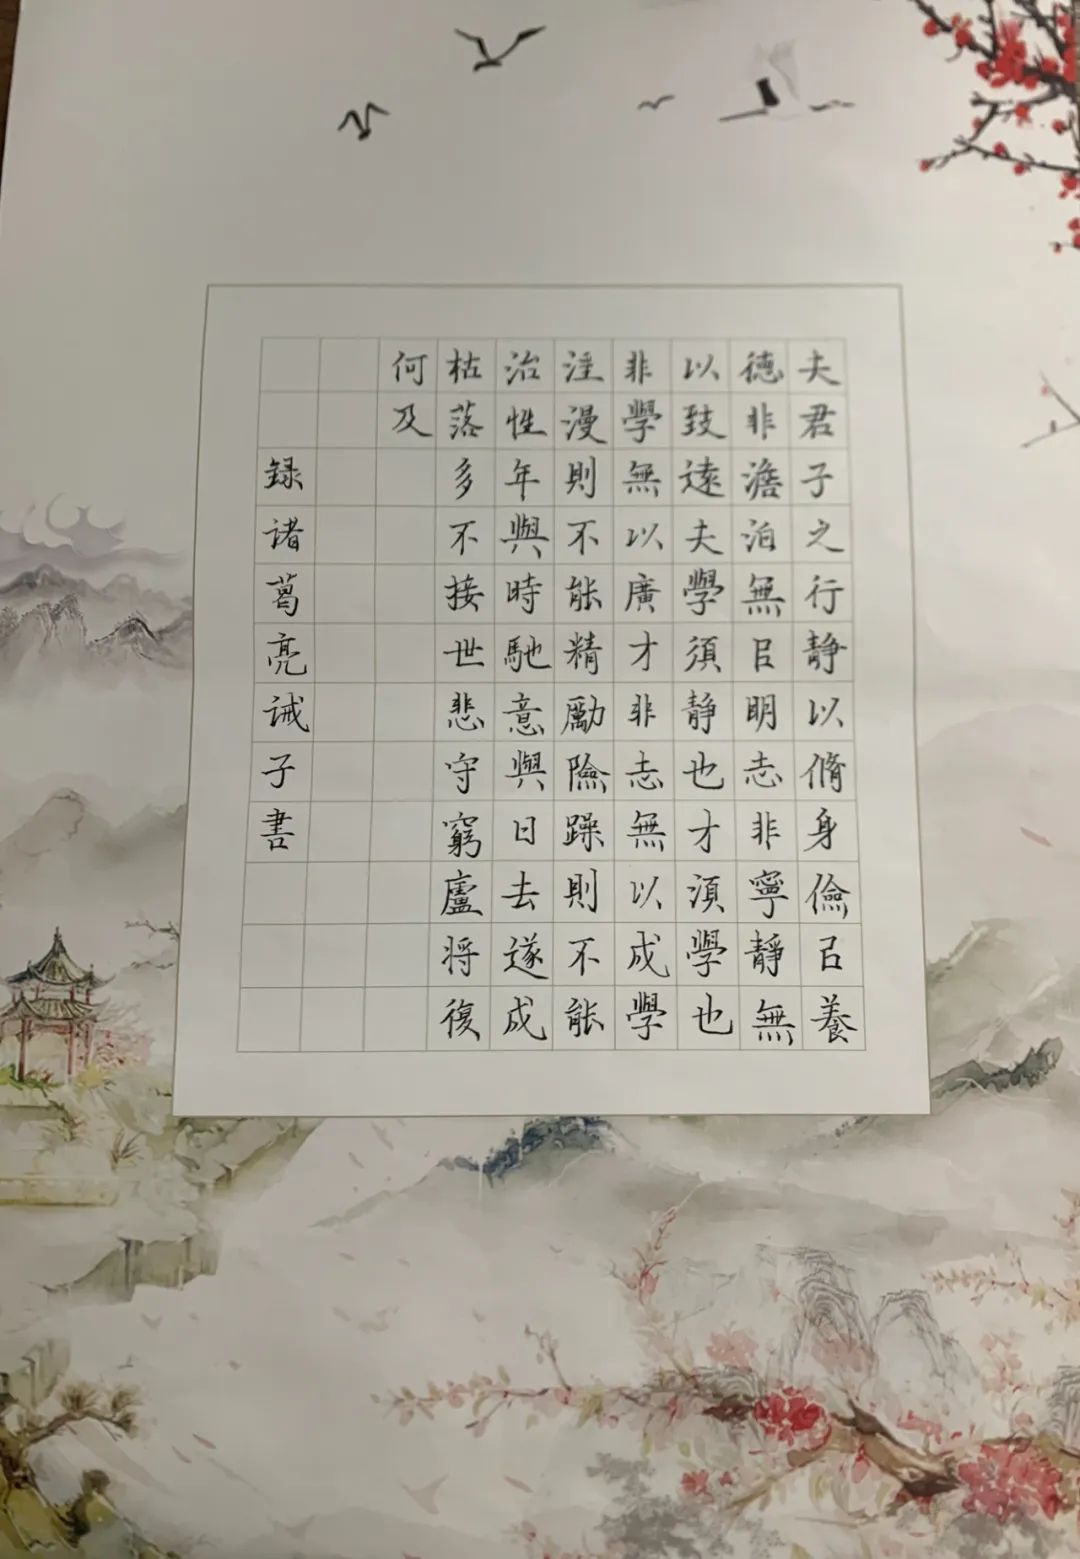 夫君子之行静以脩身儉㠯養
德非澹泊無㠯明志非寧靜無
以致遠夫學須静也才須學也
非學無以廣才非志無以成學
淫漫則不能精勵險躁則不能
治性年與時馳意與日去遂成
枯落多不接世悲守窮廬将復
何及
録诸葛亮诫子書